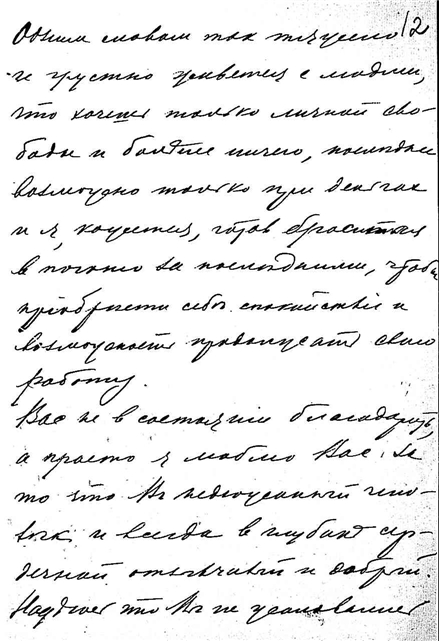 Одним словом так тяжело 12
и грустно живется с людьми,
что хочется только личной сво-
боды и больше ничего, последнее
возможно только при деньгах
и я, кажется, готов броситься
в погоню за последними, чтобы
приобрести себе спокойствие и
возможность продолжать свою
работу.
Вас не в состоянии благодарить,
а просто я люблю Вас за
то что Вы недюжинный чело-
вѣк и всегда в глубине сер-
дечной отзывчивый и добрый.
что Вы не